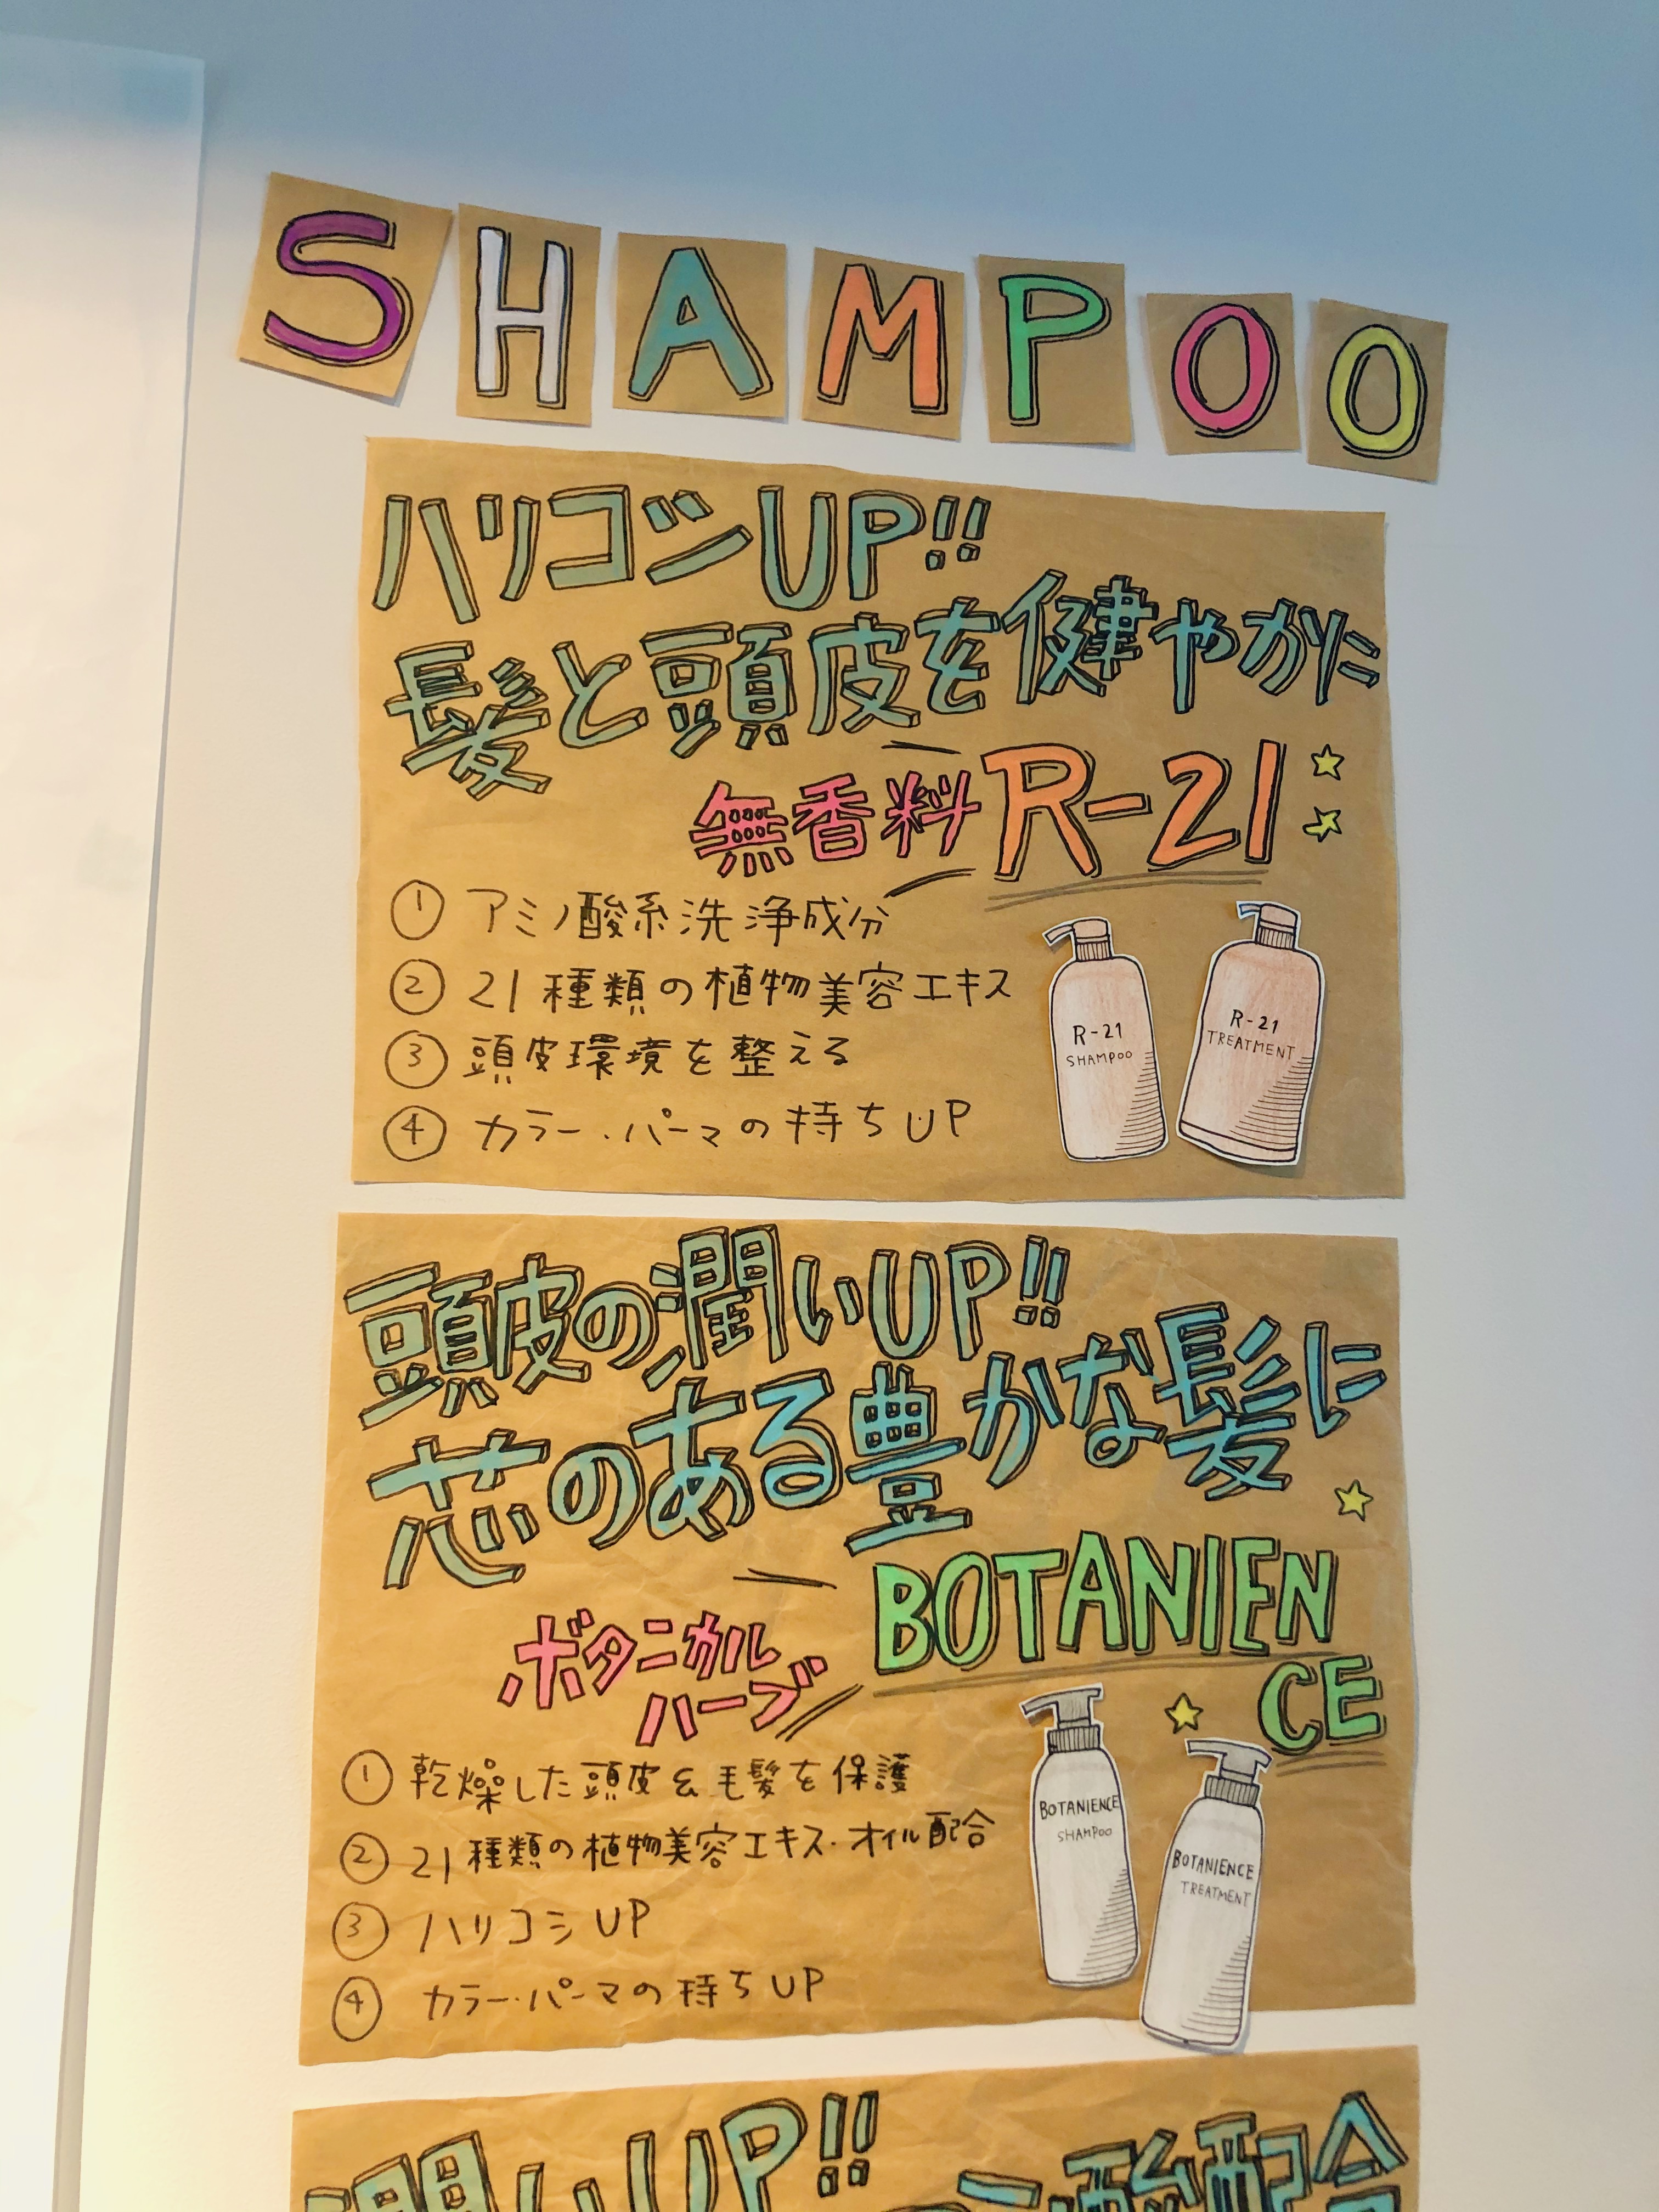 SHAMPOO
ハリコシUP!!
髪と頭皮を健やかに
無香料 R-21
① アミノ酸系洗浄成分
② 21種類の植物美容エキス
③ 頭皮環境を整える
④ カラー・パーマの持ちUP
R-21
SHAMPOO
R-21
TREATMENT
頭皮の潤いUP!!
芯のある豊かな髪に
BOTANIEN
CE
ボタニカル
ハーブ
① 乾燥した頭皮&毛髪を保護
② 21種類の植物美容エキス・オイル配合
③ ハリコシUP
④ カラー・パーマの持ちUP
BOTANIENCE
SHAMPOO
BOTANIENCE
TREATMENT
潤いUP!!
酸配合